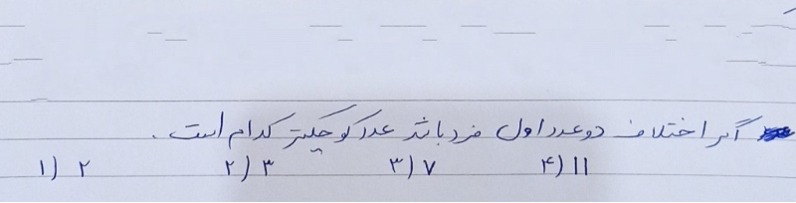 اگر اختلاف دو عدد اول فرد باشد عدد کوچکتر کدام است .
۱) ۲ ۲) ۳ ۳) ۷ ۴) ۱۱